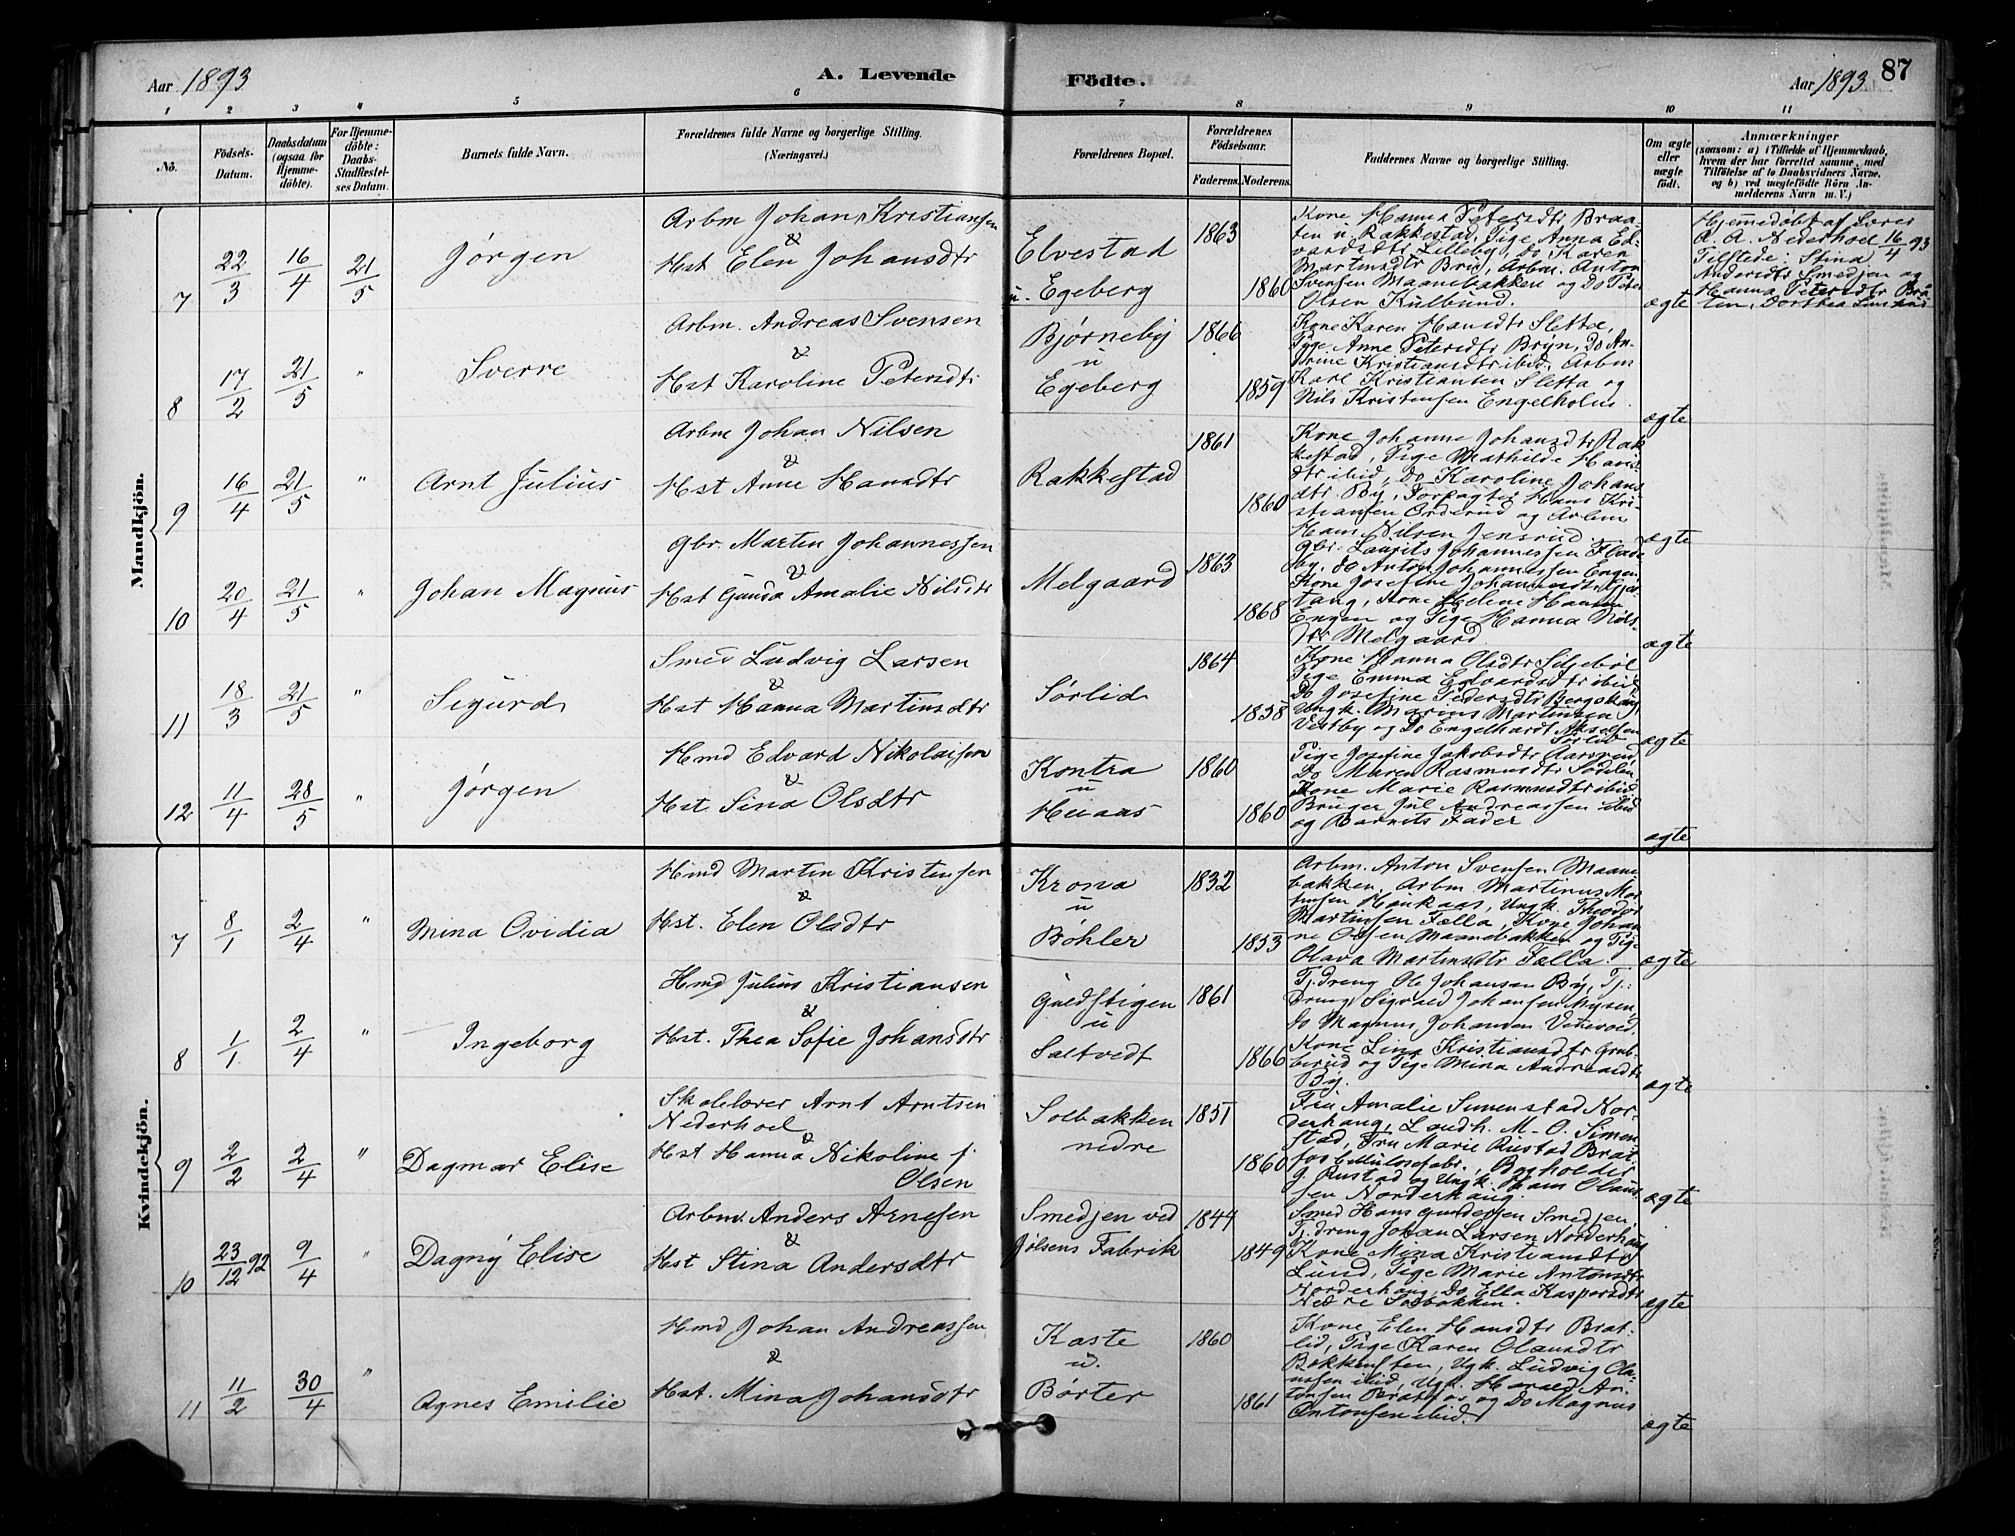 Aar 1893
A. Levende
Födte.
Aar 1893
87
1 2 3 " 5 6 7 8 9 10 11
No.
Födsels-
Datum.
Daabsdatum
(ogsaa for
Hjemme-
döbte).
For Hjemme-
döbte:
Daabs-
Stadfæstel-
ses Datum.
Barnets fulde Navn.
Forældrenes fulde Navne og borgerlige Stilling.
(Næringsvei.)
Forældrenes Bopæl.
Forældrenes
Födselsaar.
Faderens. Moderens.
Faddernes Navne og borgerlige Stilling.
Om ægte
eller
uægte
födt.
Anmærkninger
(saasom: a) i Tilfælde af Hjemmedaab,
hvem der har forrettet samme, med
Tilföielse af to Daabsvidners Navne.
og b) ved uægtefödte Börn An-
melderens Navn m. V.)
Mandkjön.
7
22/3
16/4
21/5
Jørgen
Arbm Johan Kristiansen
&
Hst Elen Johansdtr
Elvestad
u. Egeberg
1863
1860
Kone Hanna Petersdtr Braa-
ten u. Rakkestad, Pige Anna Ed-
vardsdtr Lilleby, Do Karen
Martinsdtr Bris, Arbm. Anton
Svensen Maanebakken og Do Peter
Olsen Kulbund.
ægte
Hjemmedøbt af Lærer
A. A. Nederhoel 16/4 93
Tilstede: Stina
Andersdtr Smedjen og
Hanna Petersdtr Braa-
ten, Dorthea
8
17/2
21/5
"
Sverre
Arbm. Andreas Svensen
&
Hst Karoline Petersdtr
Bjørneby
u
Egeberg
1866
1859
Kone Karen Hansdtr Sletta,
Pige Anne Petersdtr Bryn, Do An-
drine Kristiansdtr ibid, Arbm
Karl Kristiansen Sletta og
Nils Kristensen Engelholm.
ægte
9
16/4
21/5
"
Arnt Julius
Arbm Johan Nilsen
&
Hst Anne Hansdtr
Rakkestad
1861
1860
Kone Johanne Johansdtr Rak-
kestad, Pige Mathilde Hans-
dtr ibid, Do Karoline Johans-
dtr By, Forpagter Hans Kri-
stiansen Orderud og Arbm
Hans Nilsen Jensrud.
ægte
10
20/4
21/5
"
Johan Magnus
Gbr. Martin Johannessen
&
Hst Gunda Amalie Nilsdtr
Melgaard
1863
1868
Gbr. Laurits Johannessen Flade-
by, Do Anton Johannessen Engen
Kone Josefine Johannesdtr Gjer-
tang, Kone Helene Hansen
Engen og Pige Hanna Nils-
dtr Melgaard
ægte
11
18/3
21/5
"
Sigurd
Smed Ludvig Larsen
&
Hst Hanna Martinsdtr
Sørlid
1864
1858
Kone Hanna Olsdtr Siljebøl
Pige Emma Edvardsdtr ibid
Do Josefine Pedersdtr
Ungk. Marius Martinsen
Vestby og Do Engelhardt Akselsen
Sørlid
ægte
12
11/4
28/5
"
Jørgen
Hmd Edvard Nikolaisen
&
Hst. Sina Olsdtr
Kontra
u
Huaas
1860
1860
Pige Josefine Jakobsdtr Aarsrud,
Do Maren Rasmusdtr Sødelen,
Kone Marie Rasmusdtr ibid
Bruger Jul Andreassen ibid
og Barnets Fader
ægte
Kvindekjön.
7
8/1
2/4
"
Mina Ovidia
Hmd Martin Kristensen
&
Hst. Elen Olsdtr
Krona
u
Bøhler
1832
1853
Arbm. Anton Svensen Maane-
bakken, Arbm. Martinus Mor-
tensen Haukaas, Ungk. Theodor
Martinsen Fælla, Kone Johan-
ne Olsen Maanebakken og Pige
Olava Martinsdtr Fælla.
ægte
8
1/1
2/4
"
Ingeborg
Hmd Julius Kristiansen
&
Hst. Thea Sofie Johansdtr
Guldstigen
u
Saltvedt
1861
1866
Tj.dreng Ole Johansen By, Tj.:
Dreng Sigvald Johansen Mysen,
Do Magnus Johansen Vennevold
Kone Lina Kristiansdtr Grub-
berud og Pige Mina Andreasdtr
By.
ægte
9
2/2
2/4
"
Dagmar Elise
Skolelærer Arnt Arntsen
Nederhoel
&
Hst Hanna Nikoline f.
Olsen
Solbakken
nedre
1851
1860
Fru Amalie Simenstad Nor-
derhaug, Landh. M. O. Simen-
stad, Fru Marie Rustad Brat-
fos Cellulosefabr., Bogholder
G. Rustad og Ungk. Hans Olaus-
sen Norderhaug.
ægte
10
23/12 92
9/4
"
Dagny Elise
Arbm. Anders Arnesen
&
Hst Stina Andersdtr
Smedjen ved
Jølsens Fabrik
1844
1849
Smed Hans Gundersen Smedjen,
Tj.dreng Johan Larsen Norderhaug
Kone Mina Kristiansdtr
Lund, Pige Marie Antonsdtr
Norderhaug, Do Ella Kaspersdtr
Nedre Solbakken.
ægte
11
11/2
30/4
"
Agnes Emilie
Hmd Johan Andreassen
&
Hst. Mina Johansdtr
Kaste
u.
Børter
1860
1861
Kone Elen Hansdtr Brat-
lid, Pige Karen Olausdtr
Bakkensten, Ugk. Ludvig Ola-
ussen ibid, Ugk. Harald An-
tonsen Bratfos og Do Magnus
Antonsen ibid.
ægte